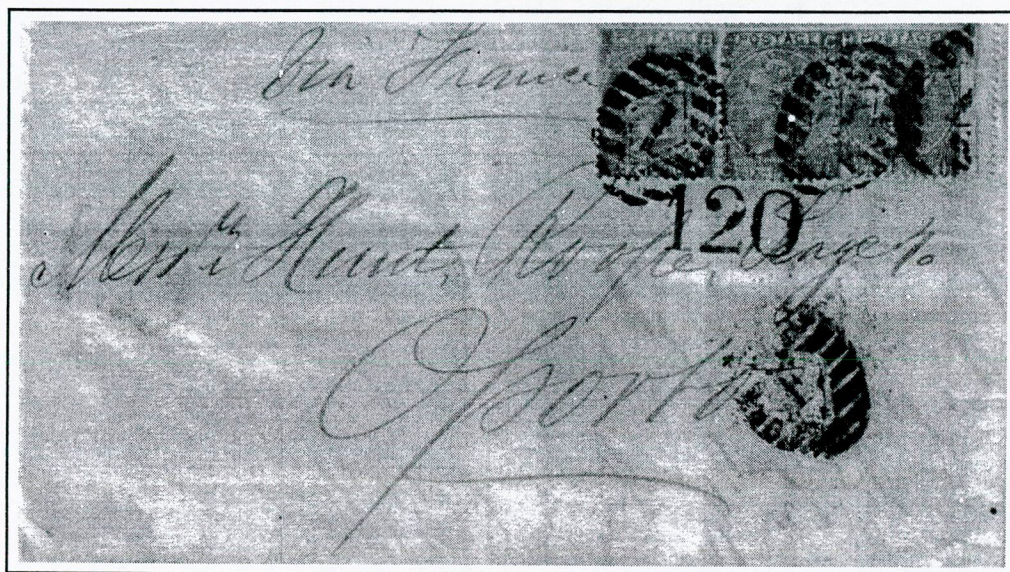 Via France
POSTAGE POSTAGE POSTAGE
120
Messrs Hunt, Roope, Teage & Co
Oporto